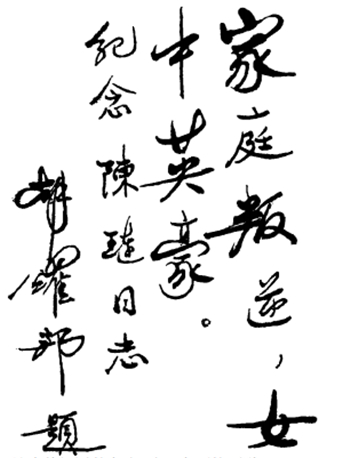 家庭叛逆，女
中英豪。
紀念陳璉同志
胡耀邦題